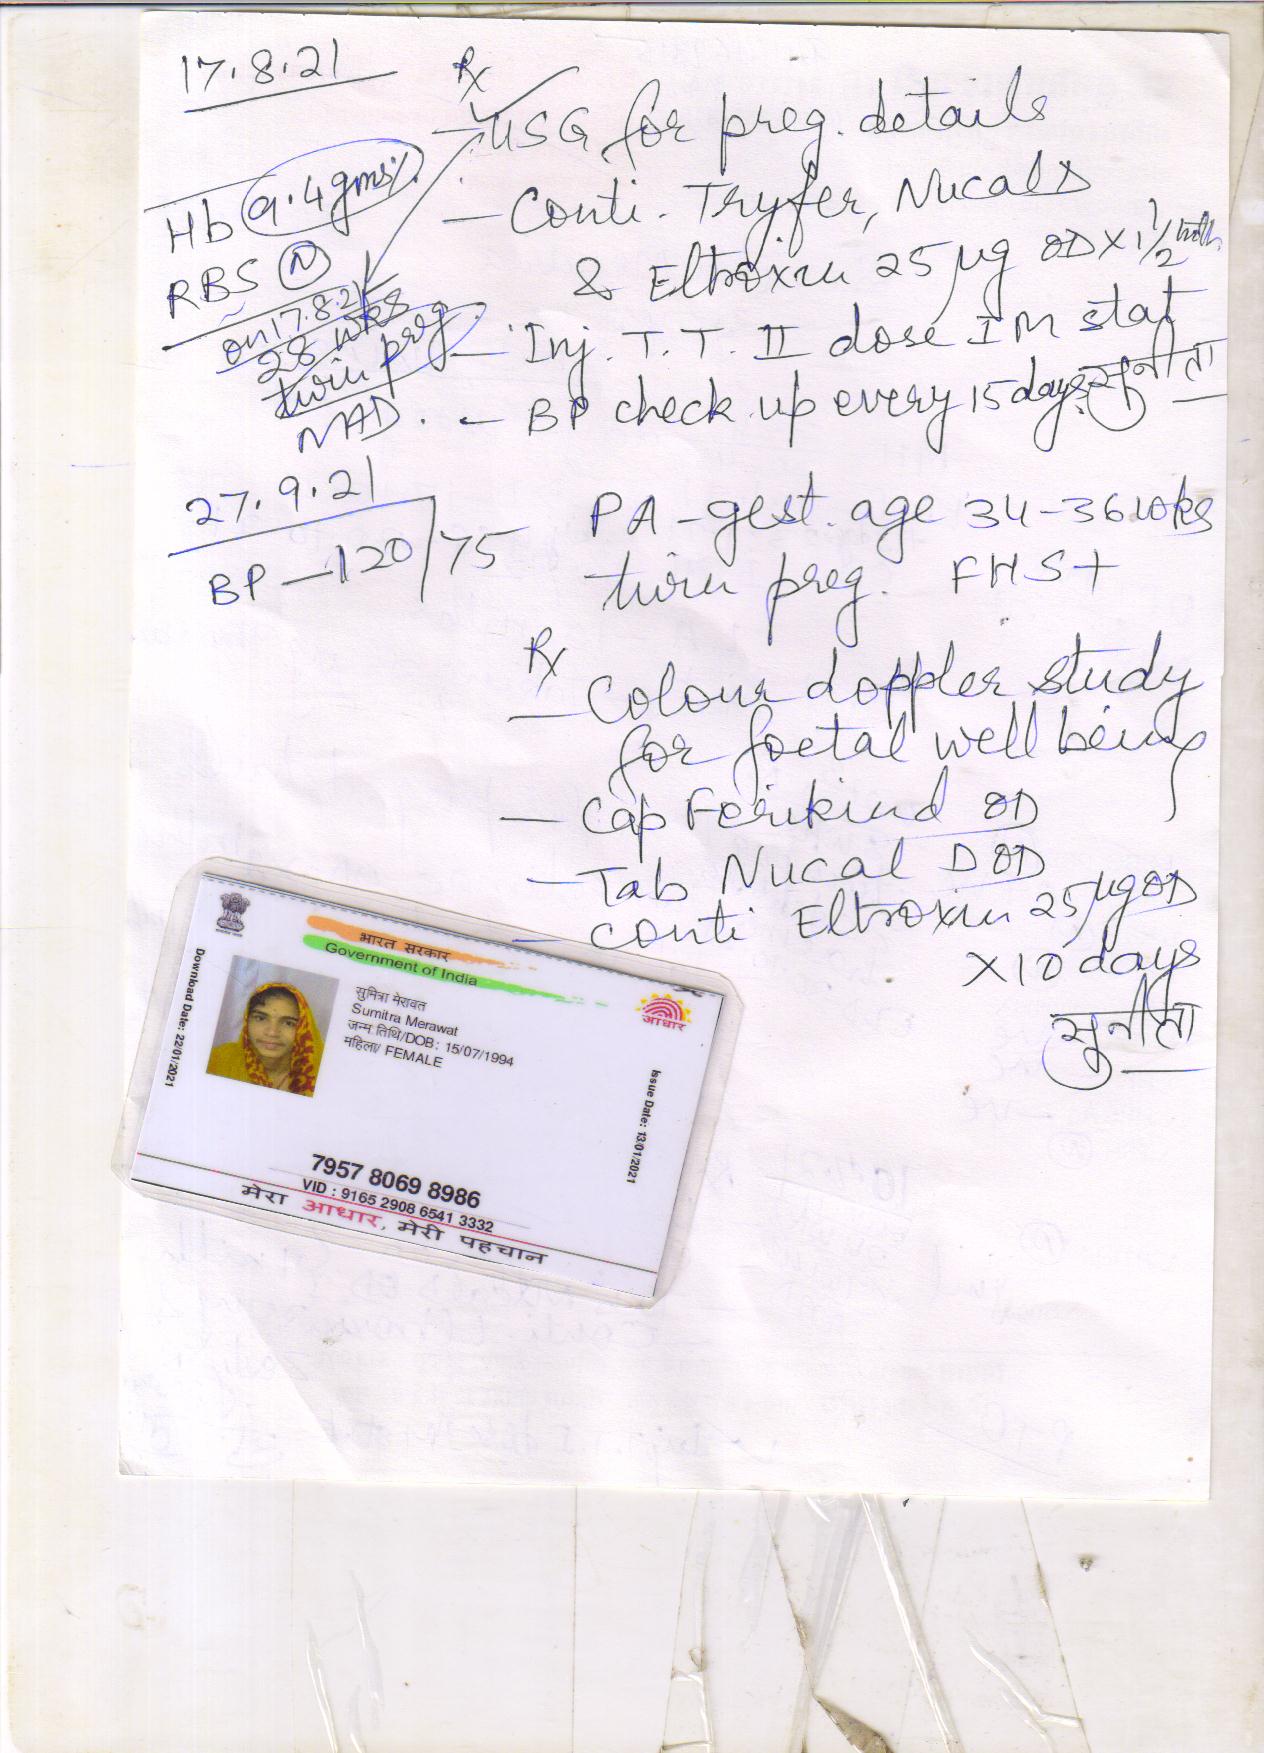 17.8.21
Rx
- USG for preg. details
Hb 9.4 gms%.
- Conti. Tryfer, Nucal D
RBS N
& Eltroxin 25 µg OD X 1 1/2 mth
on 17.8.21
28 wks
twin preg.
NAD.
- Inj. T.T. II dose IM stat
- BP check up every 15 days. सुनीता
27.9.21
BP - 120/75
PA - gest. age 34-36 wks
twin preg. FHS+
Rx
- Colour doppler study
for foetal well being
- Cap Ferikind OD
- Tab Nucal D OD
- conti Eltroxin 25 µg OD
X 10 days
सुनीता
भारत सरकार
Government of India
Download Date: 22/01/2021
सुमित्रा मेरावत
Sumitra Merawat
जन्म तिथि/DOB: 15/07/1994
महिला/ FEMALE
आधार
Issue Date: 13/01/2021
7957 8069 8986
VID : 9165 2908 6541 3332
मेरा आधार, मेरी पहचान